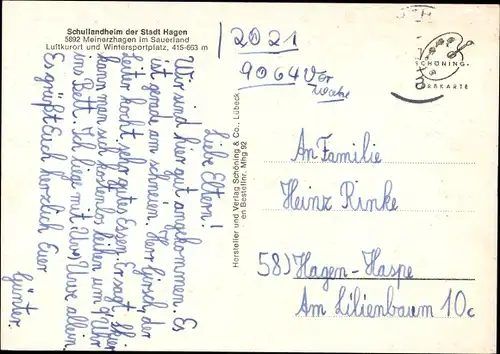 Schullandheim der Stadt Hagen
5892 Meinerzhagen im Sauerland
Luftkurort und Wintersportplatz, 415-663 m
2021
9064 Vor
SCHÖNING
Liebe Eltern!
Wir sind hier gut angekommen. Es
ist gerade am schneien. Herr Girsch, der
Leiter kocht sehr gutes Essen. Er sagt, hier
kann man sich kostenlos leihen um 9 Uhr
ins Bett. Ich liege mit Uwe allein.
Es grüßt Euch herzlich Euer
Günter.
Hersteller und Verlag Schöning & Co., Lübeck
en Bestellnr. Mhg 92
An Familie
Heinz Rinke
58) Hagen-Haspe
Am Lilienbaum 10c